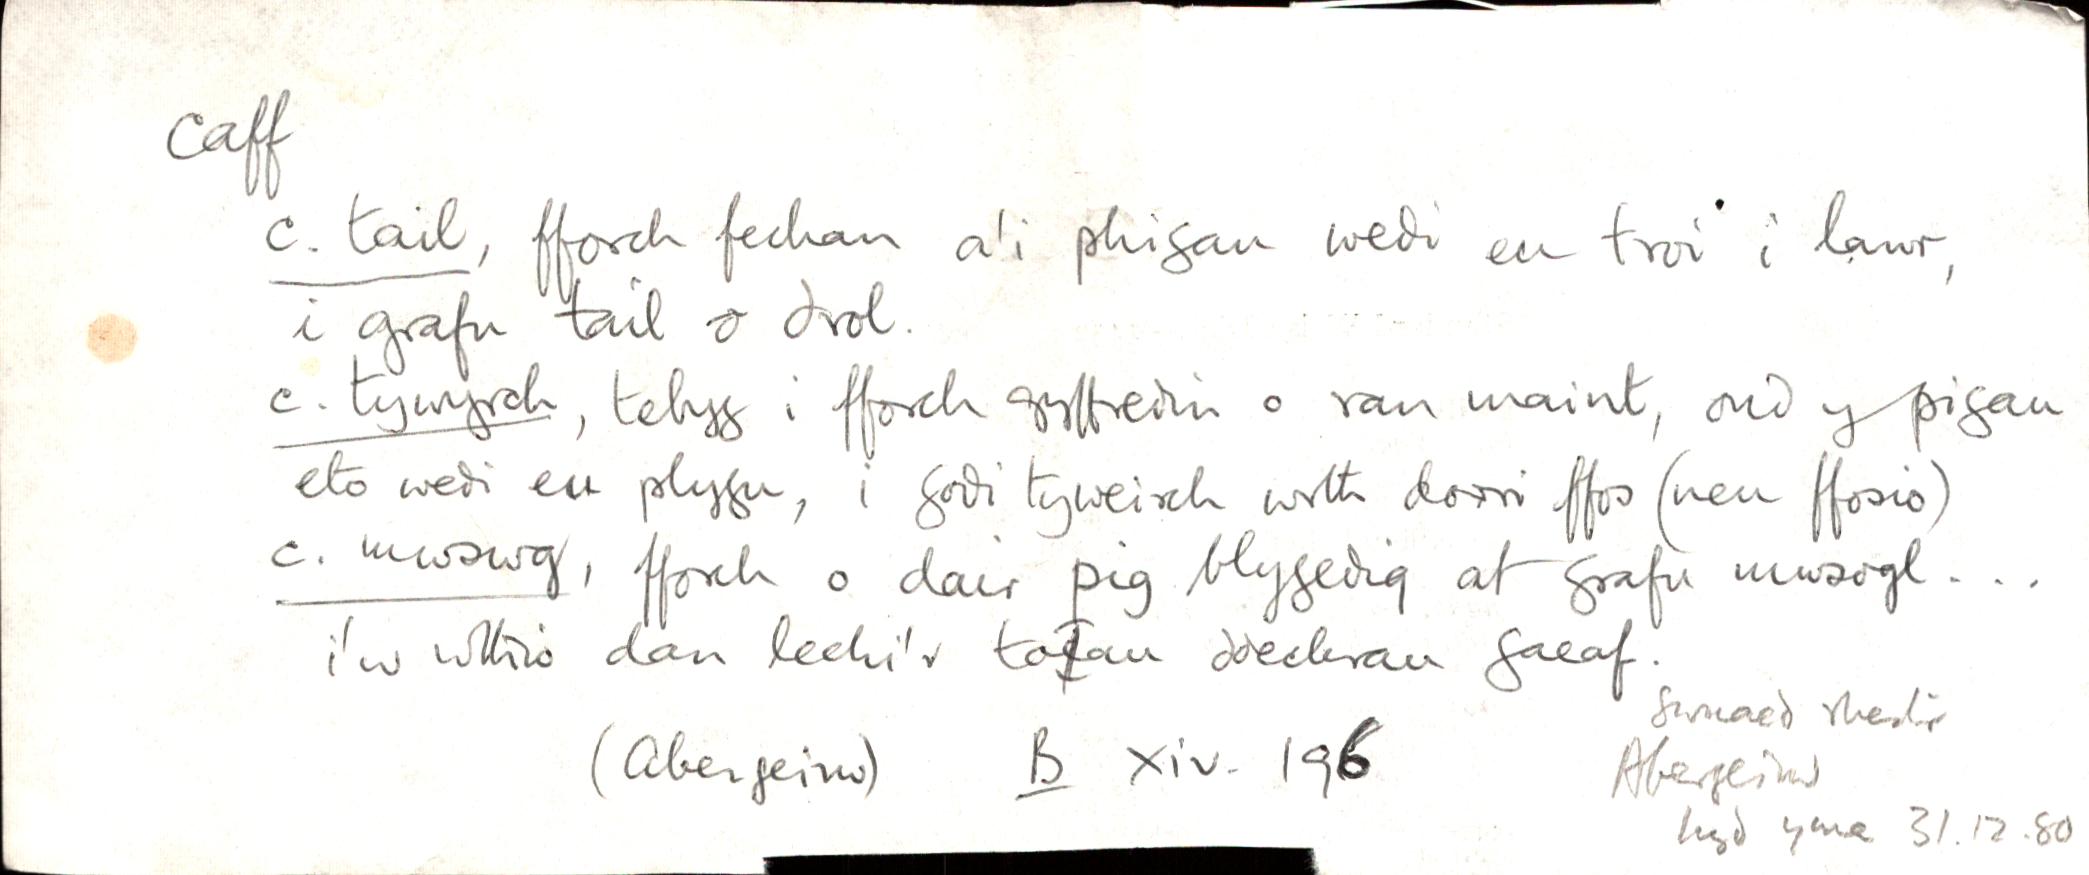 caff
c. tail, fforch fechan a'i phigau wedi eu troi i lawr,
i grafu tail o drol.
c. tywyrch, tebyg i fforch gyffredin o ran maint, ond y pigau
eto wedi eu plygu, i godi tyweirch wrth dorri ffos (neu ffosio)
c. mwswg, fforch o dair pig blygedig at grafu mwsogl....
i'w wthio dan lechi'r toeau ddechrau gaeaf.
(Abergeirw) B xiv. 196
gwnaed rhestr
Abergeirw
hyd yma 31.12.80